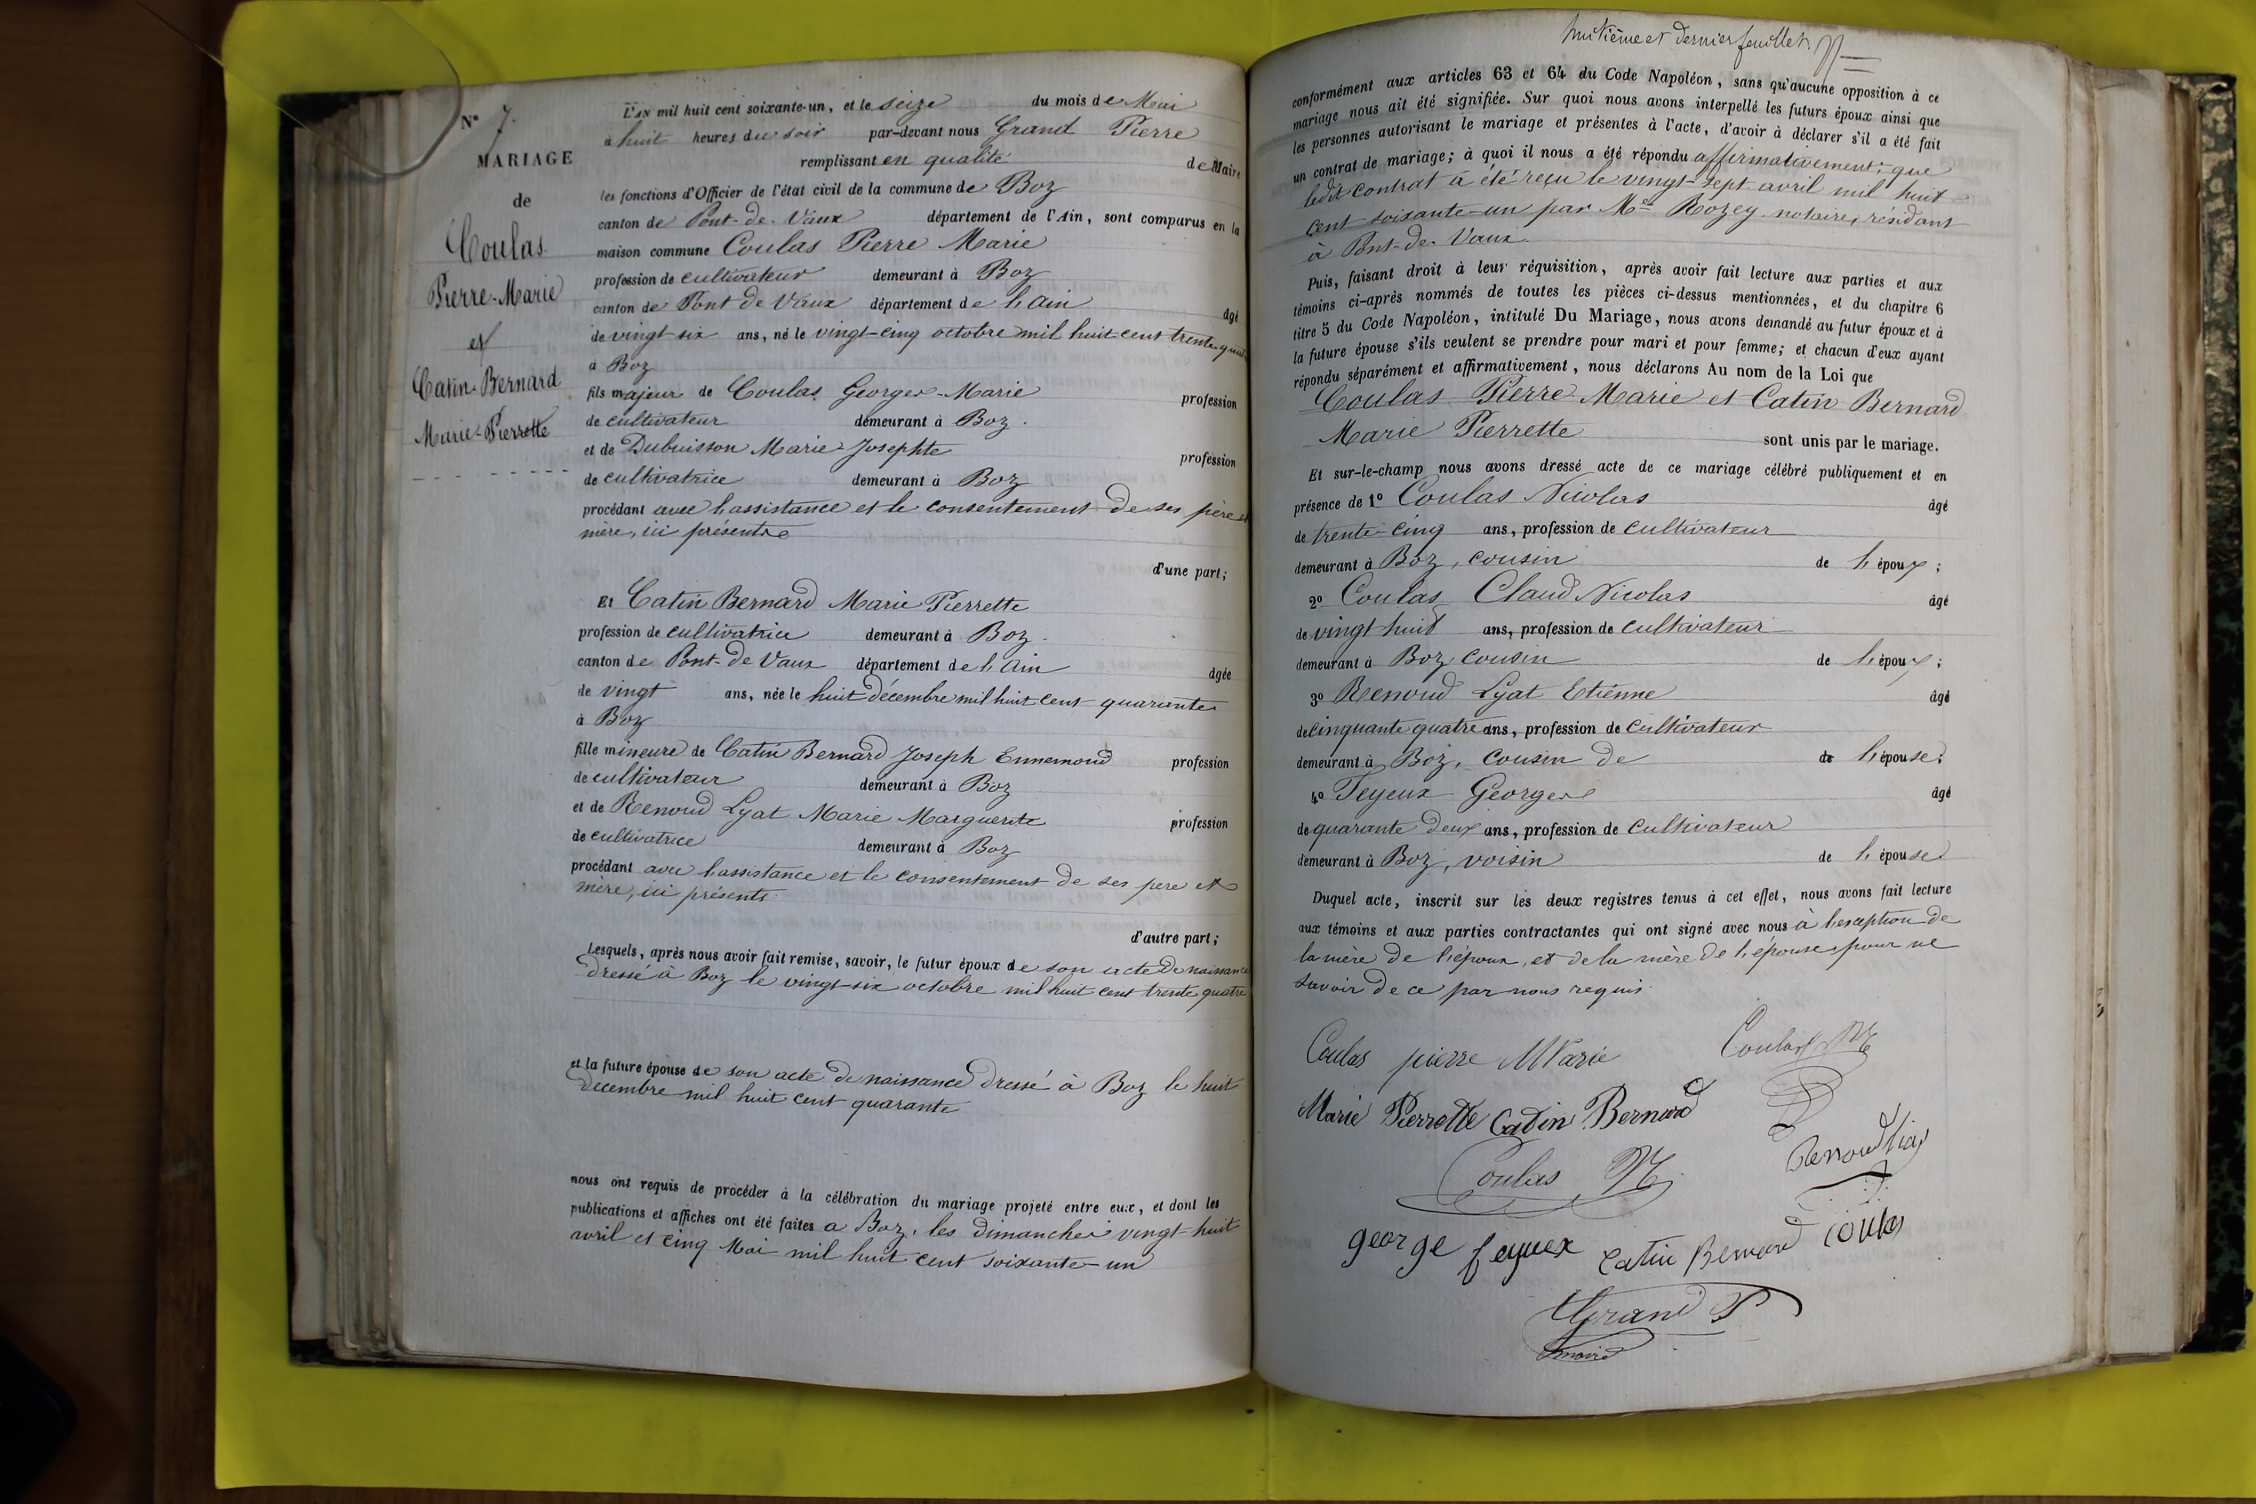 N° 7.
MARIAGE
de
Coulas
Pierre-Marie
et
Catin-Bernard
Marie-Pierrette
L'AN mil huit cent soixante-un, et le seize du mois de Mai
à huit heures du soir par-devant nous Grand Pierre
remplissant en qualité de Maire
les fonctions d'Officier de l'état civil de la commune de Boz
canton de Pont-de-Vaux département de l'Ain, sont comparus en la
maison commune Coulas Pierre Marie
profession de cultivateur demeurant à Boz
canton de Pont de Vaux département de l'Ain âgé
de vingt six ans, né le vingt-cinq octobre mil huit cent trente
à Boz
fils majeur de Coulas Georges-Marie profession
de cultivateur demeurant à Boz.
et de Dubuisson Marie Josephte profession
de cultivatrice demeurant à Boz
procédant avec l'assistance et le consentement de ses père et
mère, ici présents
d'une part;
Et Catin Bernard Marie Pierrette
profession de cultivatrice demeurant à Boz.
canton de Pont-de Vaux département de l'Ain âgée
de vingt ans, née le huit décembre mil huit cent quarante
à Boz
fille mineure de Catin Bernard Joseph Ennemond profession
de cultivateur demeurant à Boz
et de Renoud Lyat Marie Marguerite profession
de cultivatrice demeurant à Boz
procédant avec l'assistance et le consentement de ses père et
mère, ici présents
d'autre part;
Lesquels, après nous avoir fait remise, savoir, le futur époux de son acte de naissance
dressé à Boz le vingt-six octobre mil huit cent trente quatre
et la future épouse de son acte de naissance dressé à Boz le huit
décembre mil huit cent quarante
nous ont requis de procéder à la célébration du mariage projeté entre eux, et dont les
publications et affiches ont été faites à Boz, les dimanches vingt-huit
avril et cinq Mai mil huit cent soixante-un
huitième et dernier feuillet
conformément aux articles 63 et 64 du Code Napoléon, sans qu'aucune opposition à ce
mariage nous ait été signifiée. Sur quoi nous avons interpellé les futurs époux ainsi que
les personnes autorisant le mariage et présentes à l'acte, d'avoir à déclarer s'il a été fait
un contrat de mariage; à quoi il nous a été répondu affirmativement; que
ledit contrat a été reçu le vingt-sept avril mil huit
cent soixante-un par Me Rozey notaire, résidant
à Pont-de-Vaux
Puis, faisant droit à leur réquisition, après avoir fait lecture aux parties et aux
témoins ci-après nommés de toutes les pièces ci-dessus mentionnées, et du chapitre 6
titre 5 du Code Napoléon, intitulé Du Mariage, nous avons demandé au futur époux et à
la future épouse s'ils veulent se prendre pour mari et pour femme; et chacun d'eux ayant
répondu séparément et affirmativement, nous déclarons Au nom de la Loi que
Coulas Pierre Marie et Catin Bernard
Marie Pierrette sont unis par le mariage.
Et sur-le-champ nous avons dressé acte de ce mariage célébré publiquement et en
présence de 1° Coulas Nicolas âgé
de trente-cinq ans, profession de cultivateur
demeurant à Boz, cousin de l'époux;
2° Coulas Claud Nicolas âgé
de vingt huit ans, profession de cultivateur
demeurant à Boz, cousin de l'époux;
3° Renoud Lyat Etienne âgé
de cinquante quatre ans, profession de cultivateur
demeurant à Boz, cousin de de l'épouse;
4° Feyeux Georges âgé
de quarante deux ans, profession de cultivateur
demeurant à Boz, voisin de l'épouse.
Duquel acte, inscrit sur les deux registres tenus à cet effet, nous avons fait lecture
aux témoins et aux parties contractantes qui ont signé avec nous à l'exception de
la mère de l'époux, et de la mère de l'épouse pour ne
savoir de ce par nous requis.
Coulas pierre Marie Coulas
Marie Pierrette Catin Bernard
Coulas N. Renoud liat
george feyuex Catin Bernard Coulas
Grand P
maire